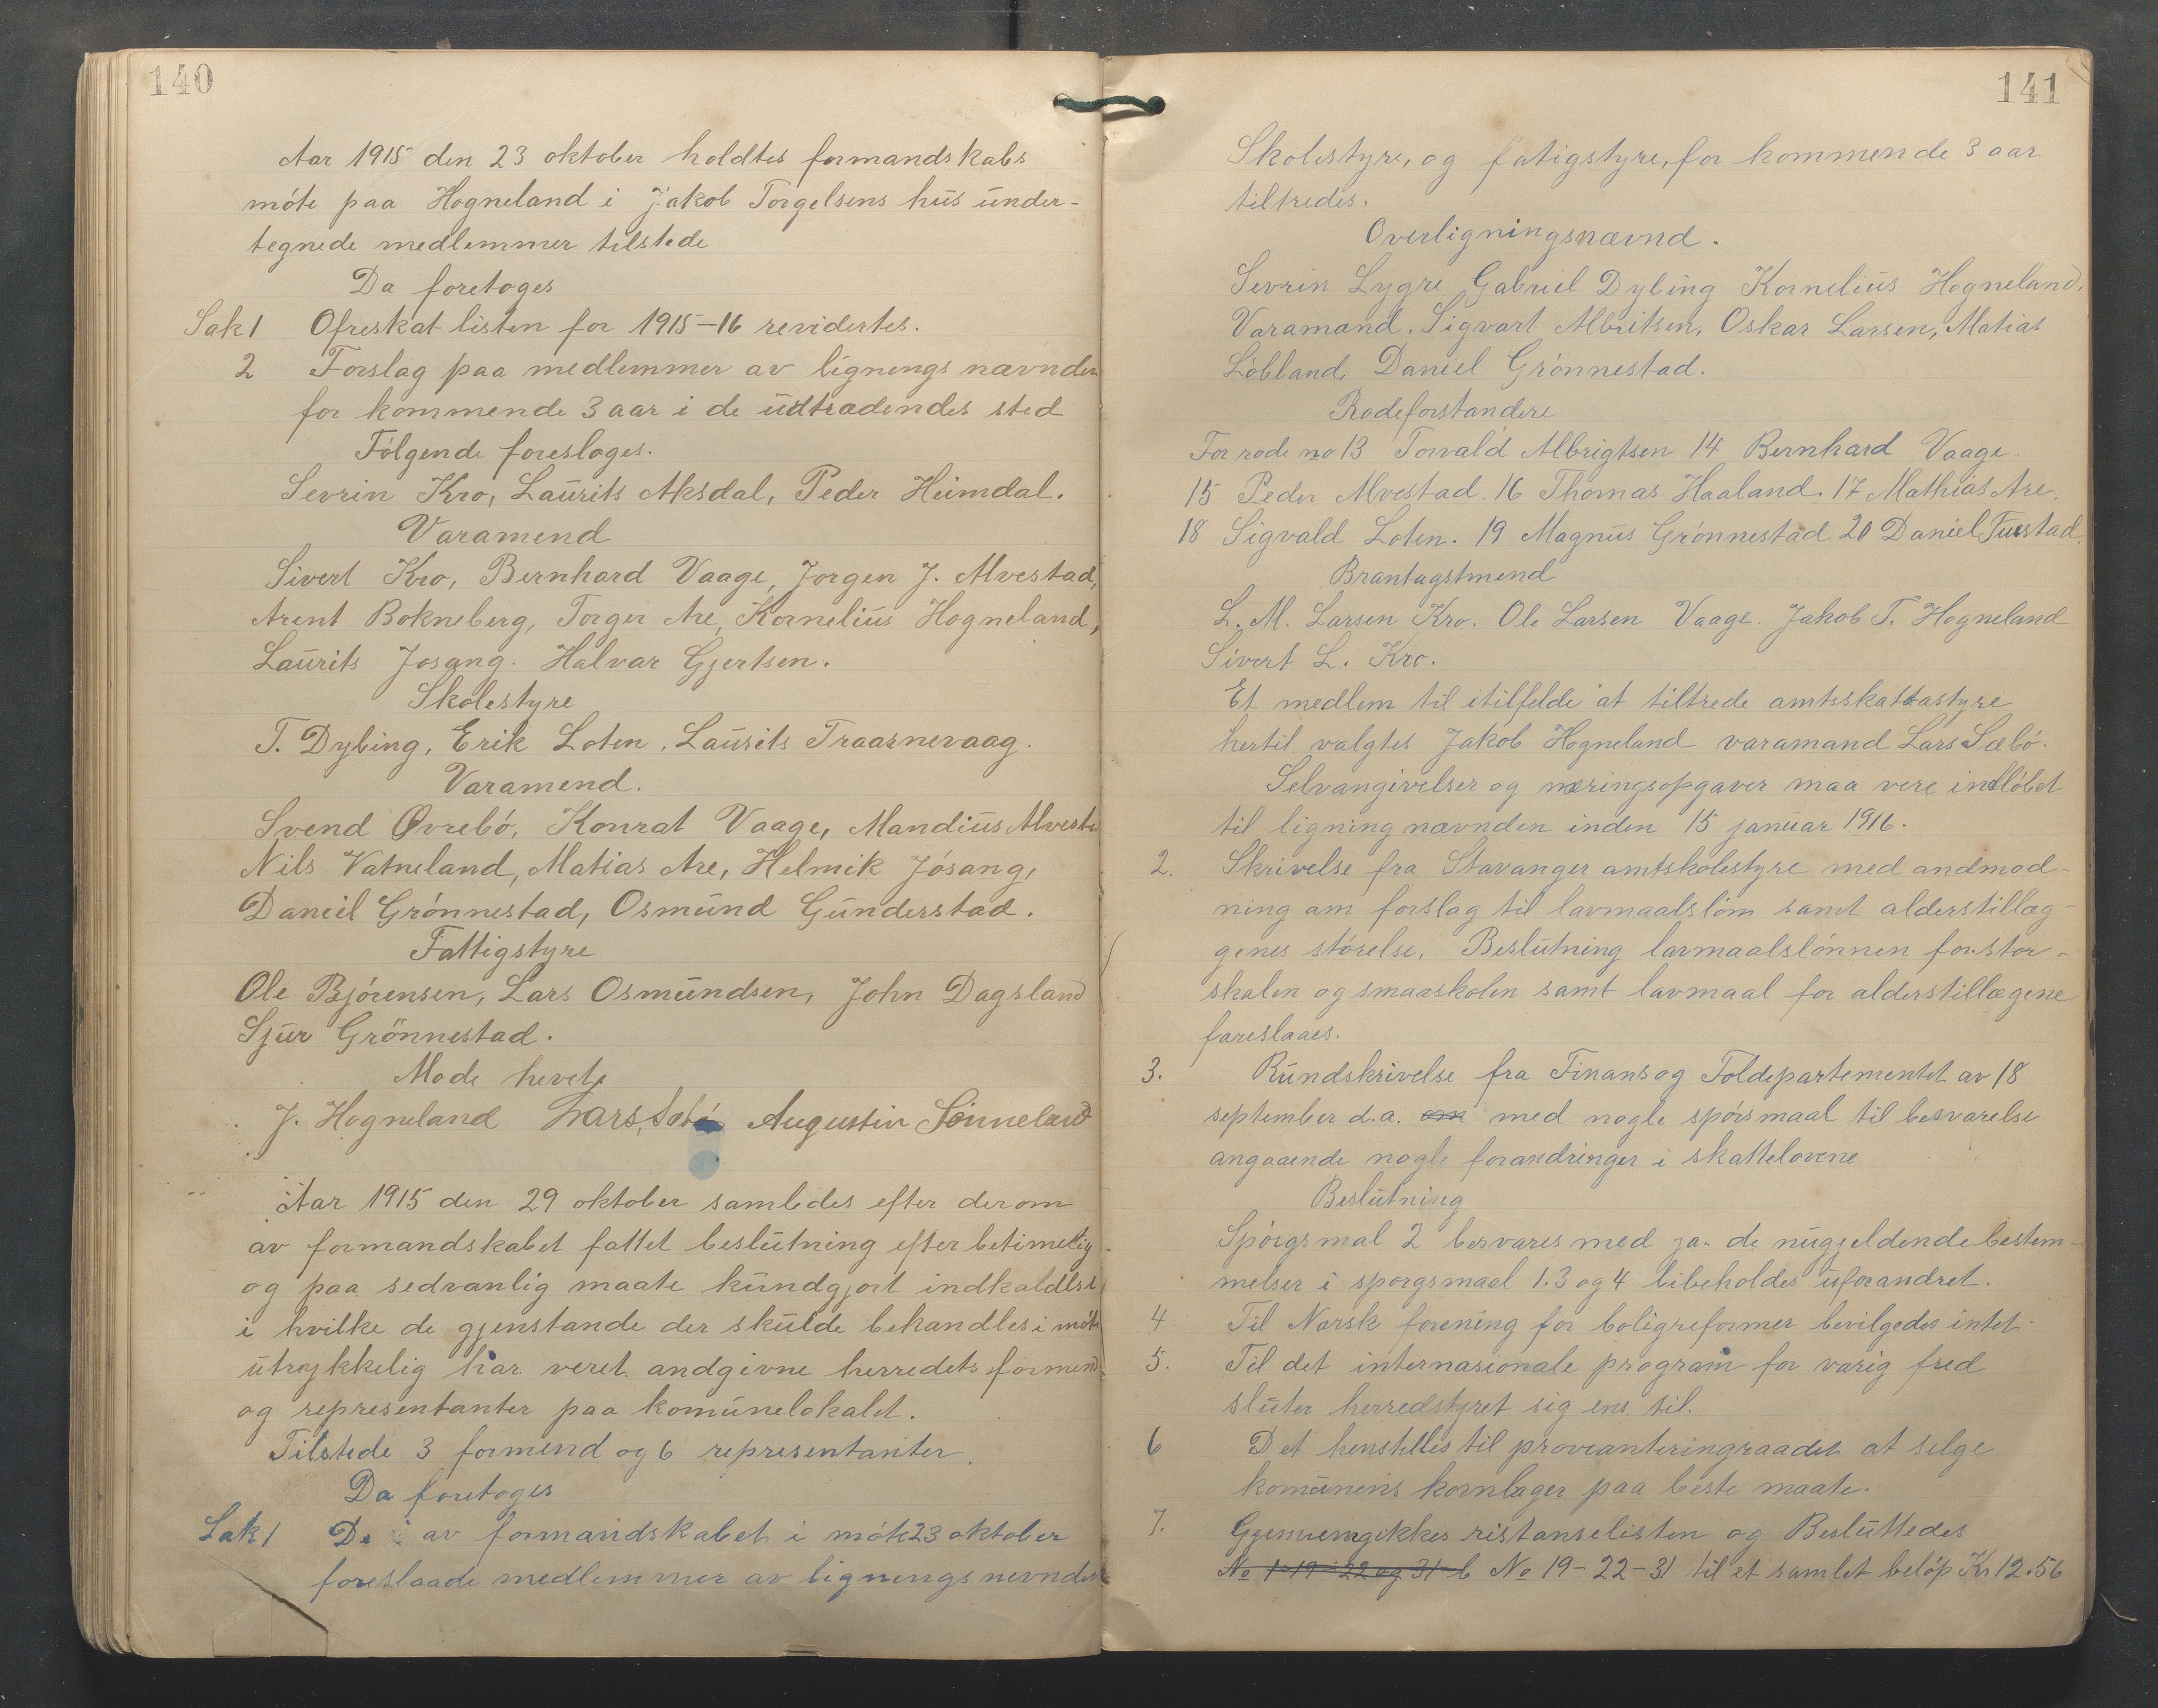 140
Aar 1915 den 23 oktober holdtes formandskabs
møte paa Hogneland i Jakob Torgelsens hus under-
tegnede medlemmer tilstede
Da foretoges
Sak 1 Ofreskat listen for 1915-16 revidertes.
2 Forslag paa medlemmer av lignings nævnden
for kommende 3 aar i de udtrædendes sted
Følgende foresloges.
Sevrin Kro, Laurits Aksdal, Peder Heimdal.
Varamend
Sivert Kro, Bernhard Vaage, Jorgen J. Alvestad,
Arent Bokneberg, Torger Are, Kornelius Hogneland,
Laurits Josang. Halvar Gjertsen.
Skolestyre
T. Dybing, Erik Loten, Laurits Traasnevaag.
Varamend.
Svend Øvrebø, Konrat Vaage, Mandius Alvesta
Nils Vatneland, Matias Are, Helmik Jøsang,
Daniel Grønnestad, Osmund Gunderstad.
Fattigstyre
Ole Bjørensen, Lars Osmundsen, John Dagsland
Sjur Grönnestad.
Møde hevet
J. Hogneland Lars Sæbø Augustin Sønneland
Aar 1915 den 29 oktober samledes efter derom
av formandskabet fattet beslutning efter betimelig
og paa sedvanlig maate kundgjort indkaldlse
i hvilke de gjenstande der skulde behandles i møte
utrykkelig har veret andgivne herredets formend
og representanter paa komunelokalet.
Tilstede 3 formend og 6 representanter.
Da foretoges
Sak 1 De av formandskabet i møte 23 oktober
foreslaade medlemmer av lignings nevnden
141
Skolestyre, og fatigstyre, for kommende 3 aar
tiltredes.
Overligningsnævnd.
Sevrin Lygre Gabriel Dybing Kornelius Hogneland.
Varamand. Sigvart Albritsen, Oskar Larsen, Matias
Løbland, Daniel Grønnestad.
Rodeforstandere
For rode no 13 Torvald Albrigtsen 14 Bernhard Vaage
15 Peder Alvestad. 16 Thomas Haaland. 17 Mathias Are.
18 Sigvald Loten. 19 Magnus Grønnestad 20 Daniel Tuestad.
Brantagstmend
L. M. Larsen Kro. Ole Larsen Vaage. Jakob T. Hogneland
Sivert L. Kro.
Et medlem til itilfelde at tiltrede amtsskattastyre
hertil valgtes Jakob Hogneland varamand Lars Sæbø.
Selvangivelser og næringsopgaver maa vere indløbet
til ligning nævnden inden 15 januar 1916.
2. Skrivelse fra Stavanger amtskolestyre med andmod-
ning om forslag til lavmaalsløm samt alderstillæg-
genes størelse. Beslutning lavmaalslønnen for stor-
skolen og smaaskolen samt lavmaal for alderstillægene
fareslaaes.
3. Rundskrivelse fra Finans og Toldepartementet av 18
september d.a. om med nogle spørsmaal til besvarelse
angaaende nogle forandringer i skattelovene
Beslutning
Spørgsmal 2 besvares med ja. de nugjeldende bestem-
melser i sporgsmaal 1.3 og 4 bibeholdes uforandret.
4. Til Norsk forening for boligreformer bevilgedes intet.
5. Til det internasionale program for varig fred
sluter herredstyret sig ens til.
6 Det henstilles til provianteringraadet at selge
komunens kornlager paa beste maate.
7. Gjennemgikkes ristanselisten og Besluttedes
No 1-19-22 og 31 b No 19-22-31 til et samlet beløp Kr 12.56